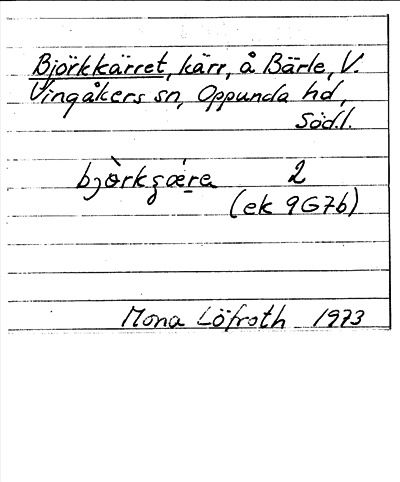 Björkkärret, kärr, å Bärle, V.
Vingåkers sn, Oppunda hd,
Södl.
bjòrkʒǽre 2
(ek 9G7b)
Mona Löfroth 1973